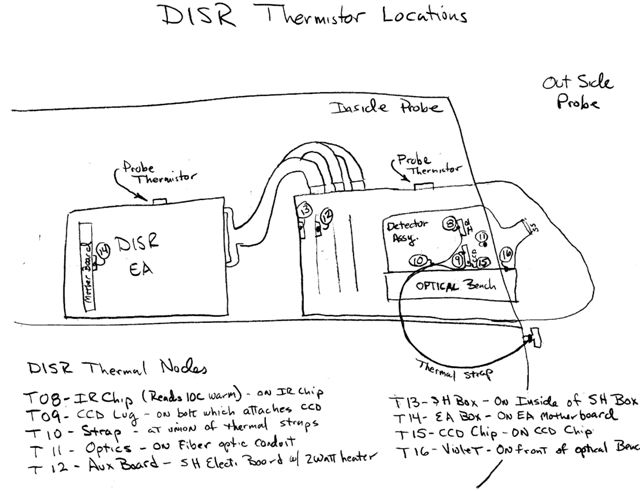 DISR Thermistor Locations
Inside Probe
Out Side
Probe
Probe
Thermistor
Probe
Thermistor
DISR
EA
Mother Board
14
13
12
Detector
Assy.
8
IR
11
10
9
CCD
15
16
OPTICAL Bench
Thermal Strap
DISR Thermal Nodes
T08 - IR Chip (Reads 10C warm) - ON IR Chip
T09 - CCD Lug - on bolt which attaches CCD
T10 - Strap - at union of thermal straps
T11 - Optics - ON Fiber optic conduit
T12 - Aux Board - SH Electi Board w/ 2watt heater
T13 - SH Box - ON Inside of SH Box
T14 - EA Box - ON EA Motherboard
T15 - CCD Chip - ON CCD Chip
T16 - Violet - ON front of optical Benc